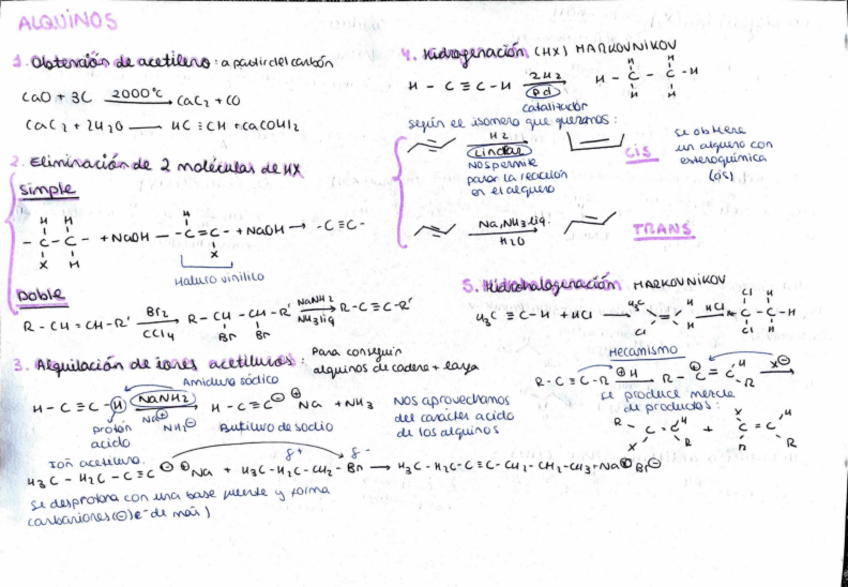 ALQUINOS
1. Obtención de acetileno: a partir del carbón
CaO + 3C 2000°C CaC2 + CO
CaC2 + 2H2O HC≡CH + Ca(OH)2
2. Eliminación de 2 moléculas de HX
Simple
H H H
-C-C- + NaOH — -C=C- + NaOH → -C≡C-
X H X
Haluro vinílico
Doble
R-CH=CH-R' Br2 CCl4 R-CH-CH-R' NaNH2 NH3 liq R-C≡C-R'
Br Br
3. Alquilación de iones acetiluros: Para conseguir
alquinos de cadena + larga
Amiduro sódico
H-C≡C-H NaNH2 H-C≡C⊖ ⊕Na + NH3
protón Na⊕ NH2⊖
ácido
Nos aprovechamos
del carácter ácido
de los alquinos
Ion acetiluro. δ+ δ-
H3C-H2C-C≡C⊖ ⊕Na + H3C-H2C-CH2-Br → H3C-H2C-C≡C-CH2-CH2-CH3+Na⊕Br⊖
Se desprotona con una base fuerte y forma
carbaniones (⊖)e- de más)
4. Hidrogenación (HX) MARKOVNIKOV
H H
H-C≡C-H 2H2 Pd H-C-C-H
H H
catalizador
según el isómero que queramos:
H2
Lindlar
Nos permite
parar la reacción
en el alqueno
CIS
se obtiene
un alqueno con
esteroquímica
(cis)
Na, NH3 liq.
H2O
TRANS
5. Hidrohalogenación MARKOVNIKOV
H3C≡C-H + HCl H3C Cl H H HCl Cl H C-C-H Cl H
Mecanismo
R-C≡C-R ⊕H R-C⊕=C H R X⊖
se produce mezcla
de productos:
R X C=C H R + X R C=C H R